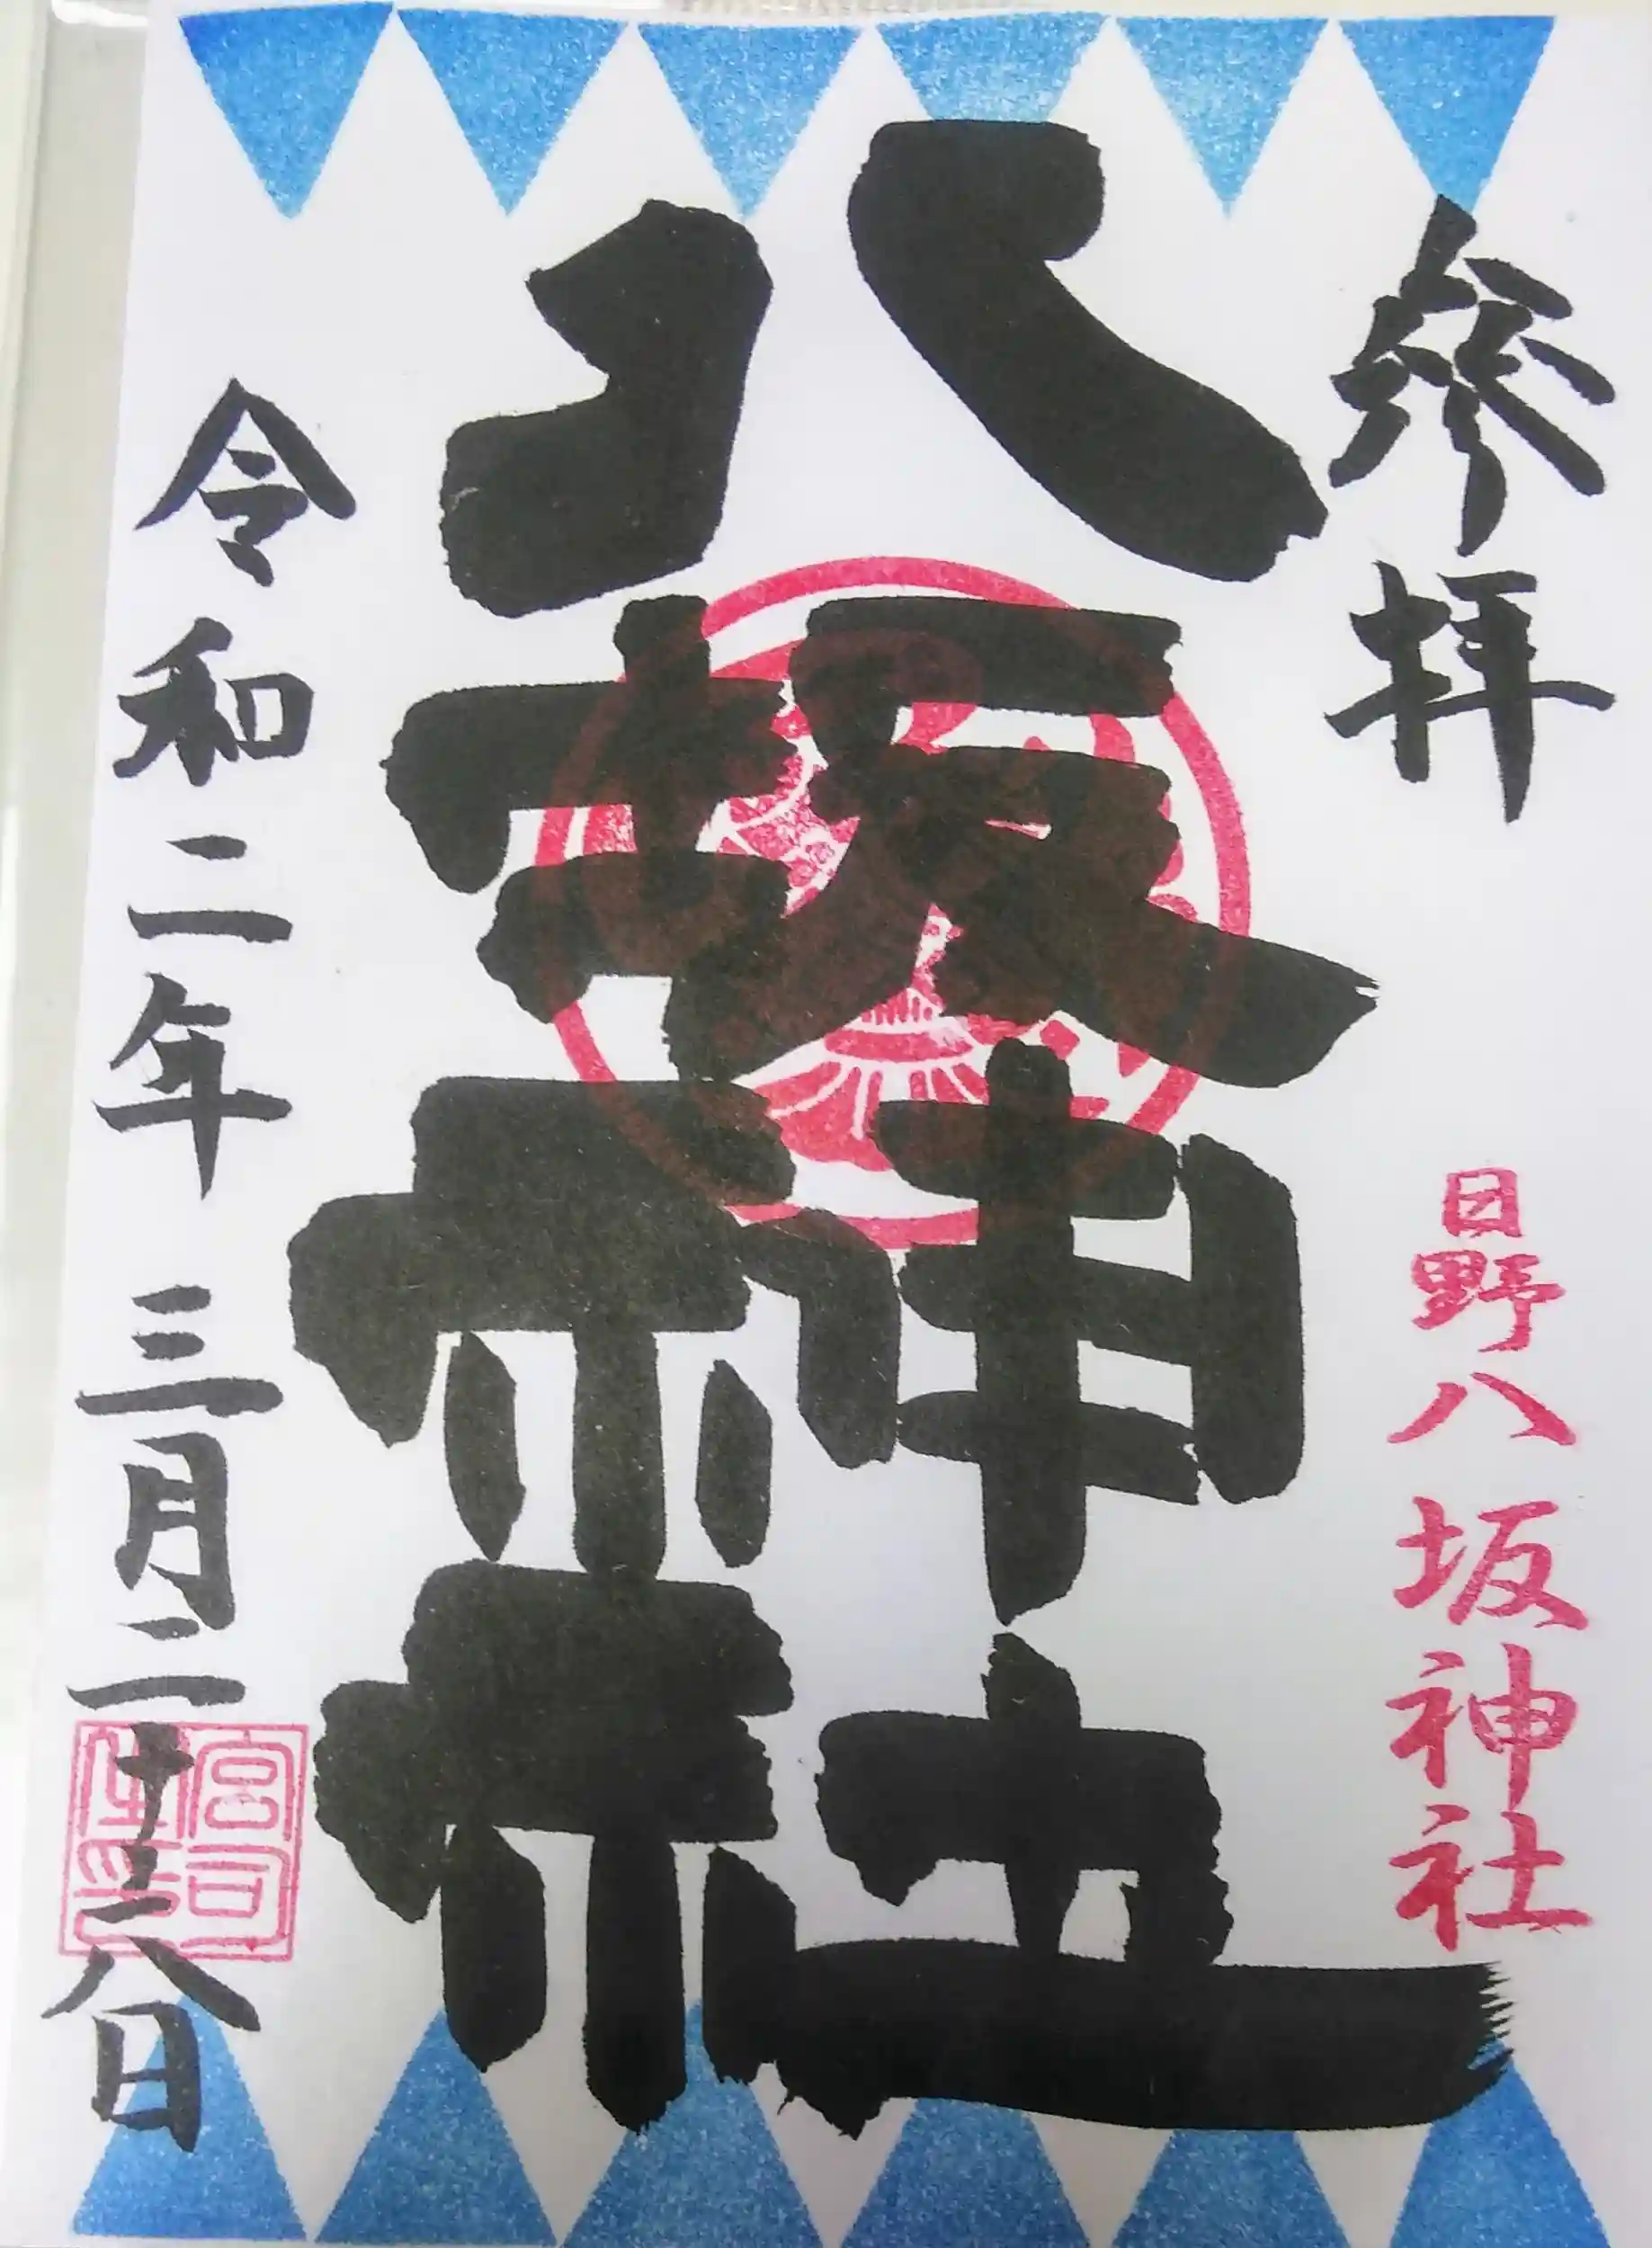 参拝
日野八坂神社
八坂神社
令和二年 三月二十八日
宮司
之印